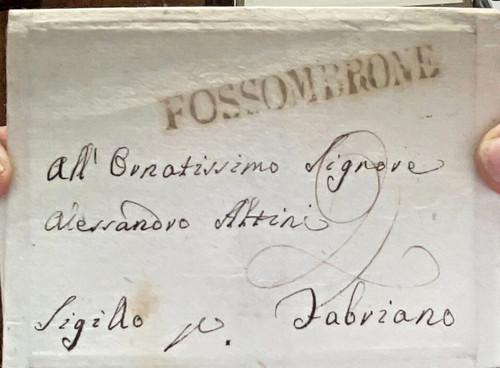 FOSSOMBRONE
All' Ornatissimo Signore
Alessandro
Sigillo p. Fabriano